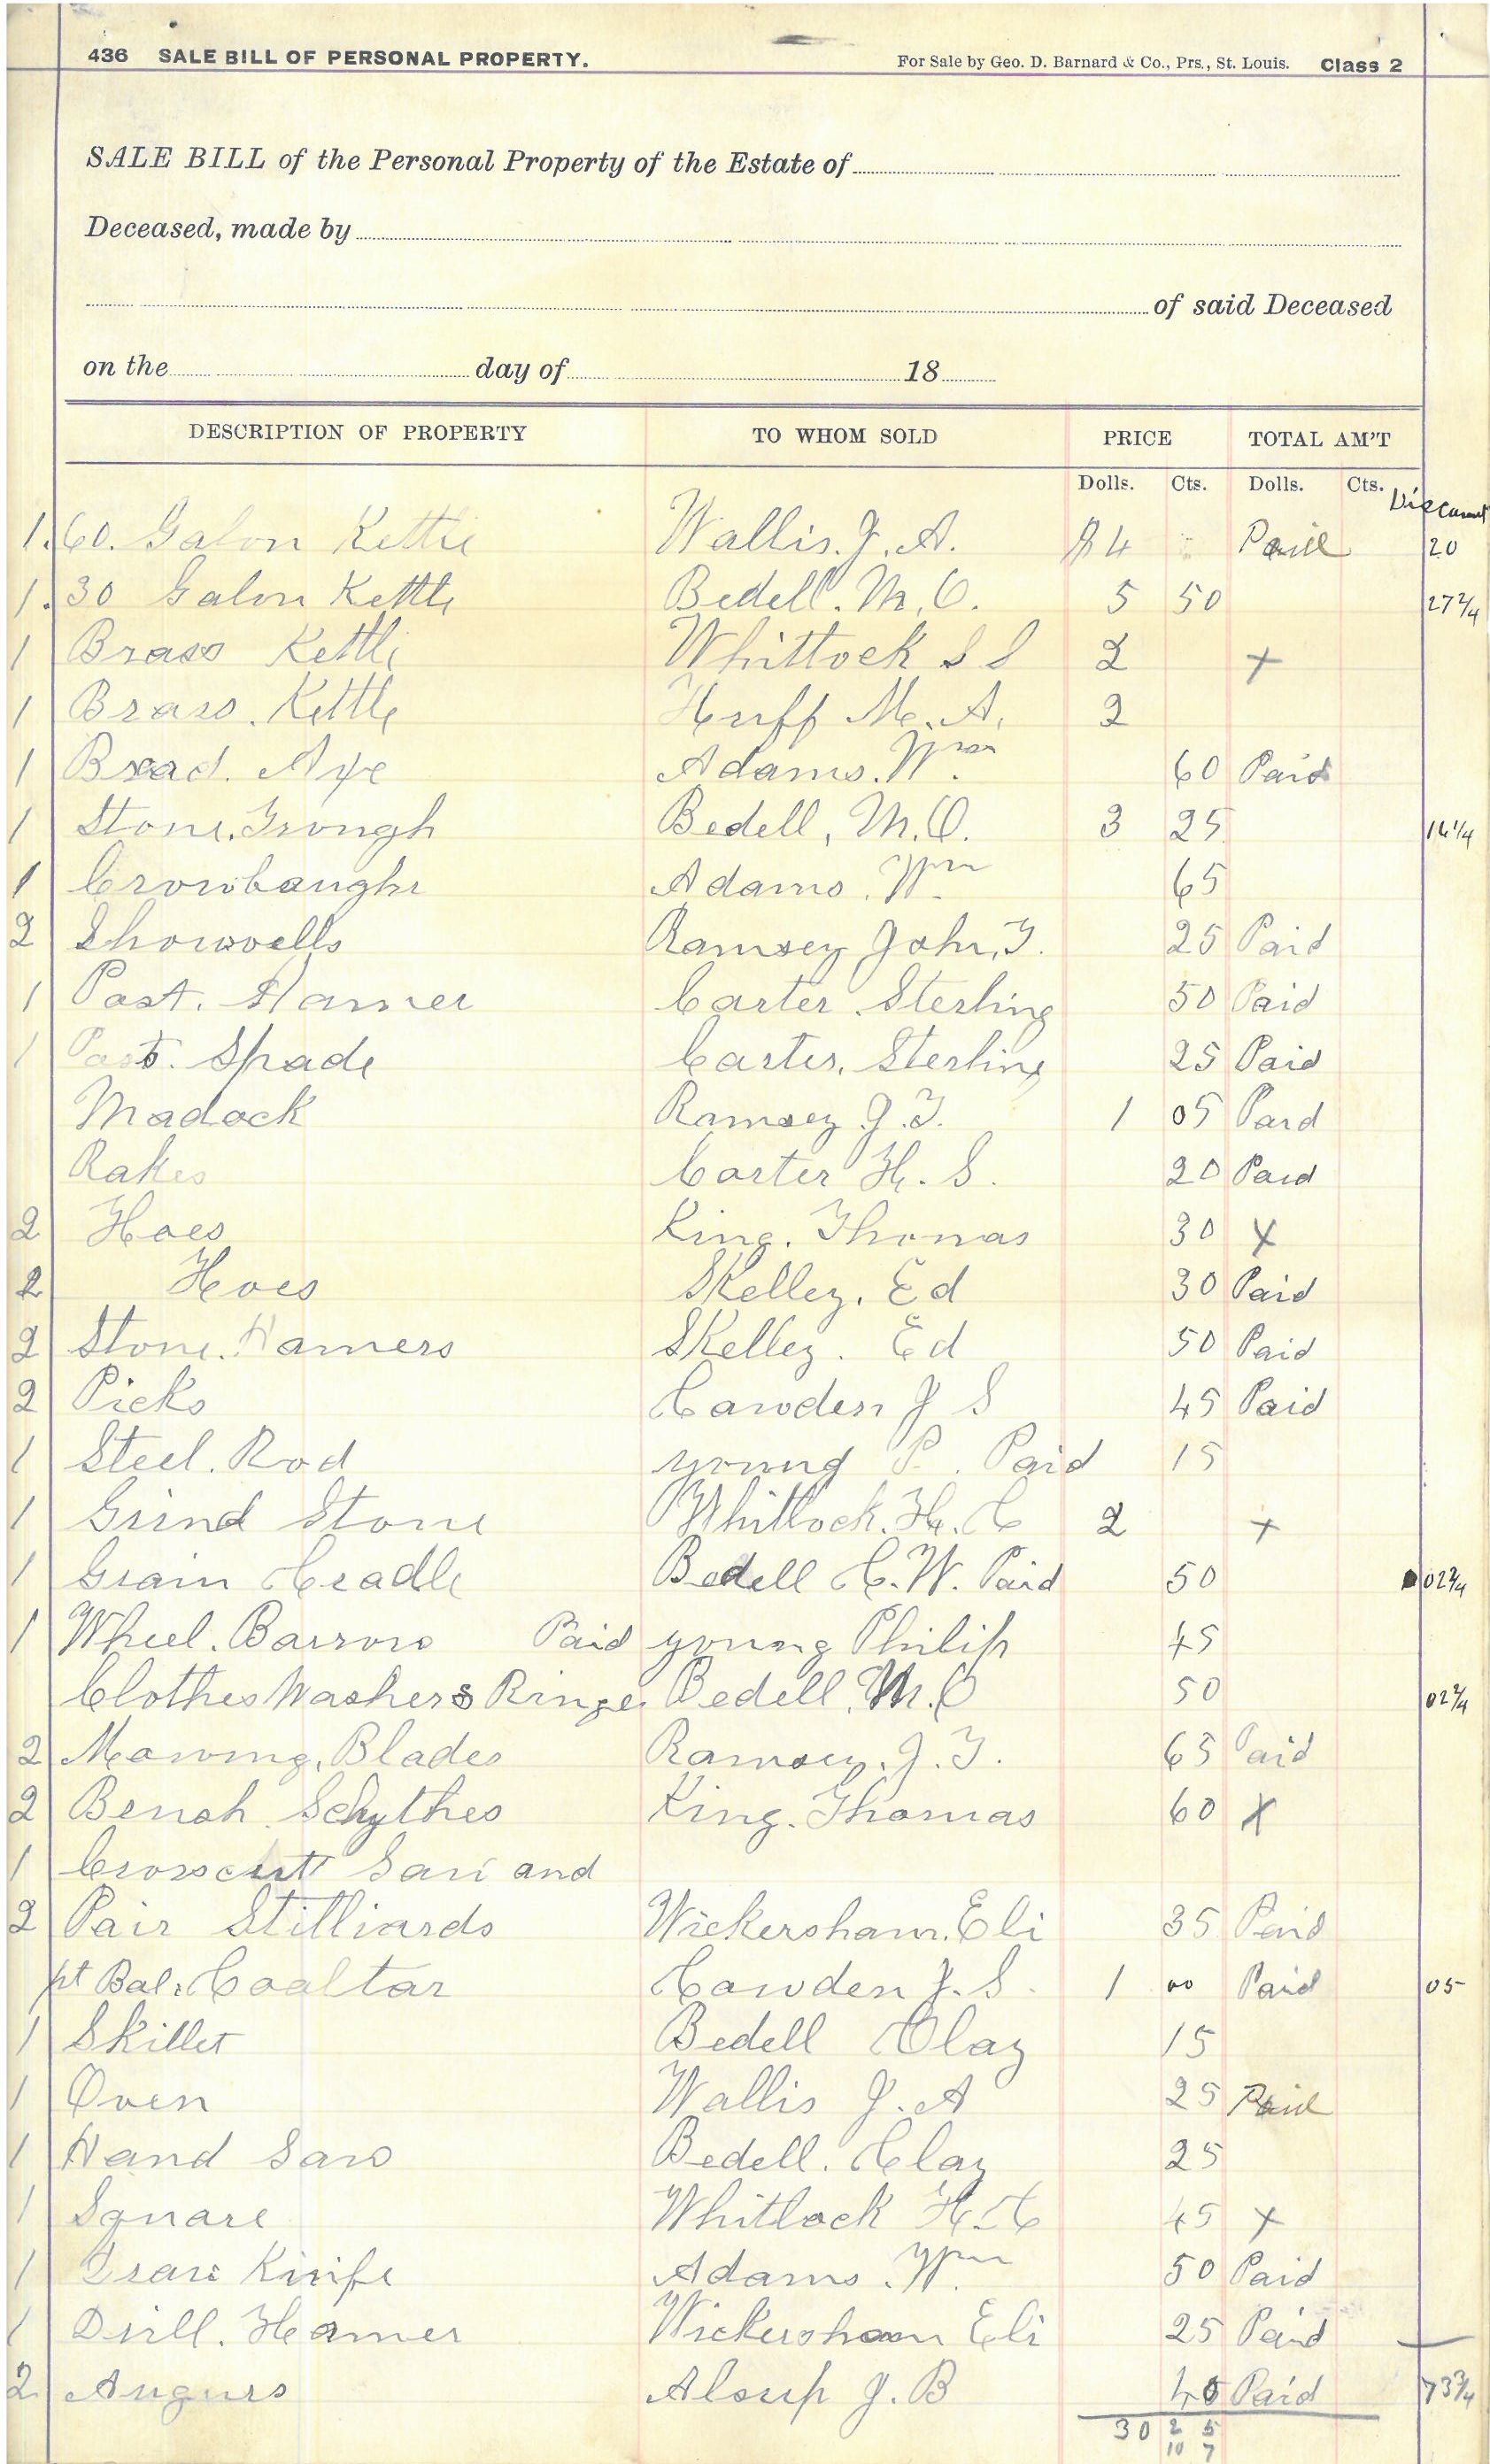 436 SALE BILL OF PERSONAL PROPERTY. For Sale by Geo. D. Barnard & Co., Prs., St. Louis. Class 2
SALE BILL of the Personal Property of the Estate of
Deceased, made by
of said Deceased
on the day of 18
DESCRIPTION OF PROPERTY TO WHOM SOLD PRICE TOTAL AM'T
Dolls. Cts. Dolls. Cts. Discount
1. 60. Galon Kettle Wallis. J. A. $4 Paid 20
1. 30 Galon Kettle Bedell. M. O. 5 50 27 2/4
1 Brass Kettle Whittock S S 2 +
1 Brass. Kettle Huff M. A. 2
1 Broad. Axe Adams. Wm 60 Paid
1 Stone. Trough Bedell, M. O. 3 25 16 1/4
1 Crowbaughr Adams. Wm 65
2 Showvells Ramsey John. T. 25 Paid
1 Post. Hamer Carter Sterling 50 Paid
1 Post. Spade Carter. Sterling 25 Paid
Madock Ramsey J. T. 1 05 Paid
Rakes Carter H. S. 20 Paid
2 Hoes King. Thomas 30 X
2 Hoes Skelley. Ed 30 Paid
2 Stone. Hamers Skelley. Ed 50 Paid
2 Picks Cawden J S 45 Paid
1 Steel. Rod young P. Paid 15
1 Grind Stone Whitlock. H. C 2 +
1 Grain Cradle Bedell C. W. Paid 50 02 2/4
1 Wheel. Barrow Paid young Philip 45
Clothes Washers Ringe Bedell. M. O 50 02 2/4
2 Mowing. Blades Ramsey. J. T. 65 Paid
2 Bench Schythes King. Thomas 60 X
1 Crosscut Saw and
2 Pair Stilliards Wickersham. Eli 35 Paid
pt Bal. Coaltar Cawden J. S. 1 00 Paid 05
1 Skillet Bedell Clay 15
1 Oven Wallis J. A 25 Paid
1 Hand Saw Bedell. Clay 25
1 Square Whitlock H. C 45 +
1 Draw Knife Adams. Wm 50 Paid
1 Drill. Hamer Wickersham Eli 25 Paid
2 Augurs Alsup J. B 40 Paid 73 3/4
30 25
10 7